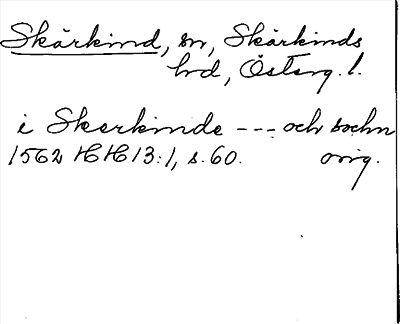 Skärkind, sn, Skärkinds
hd, Österg. l.
i Skerkinde --- och sochn
1562 HH 13:1, s. 60. orig.